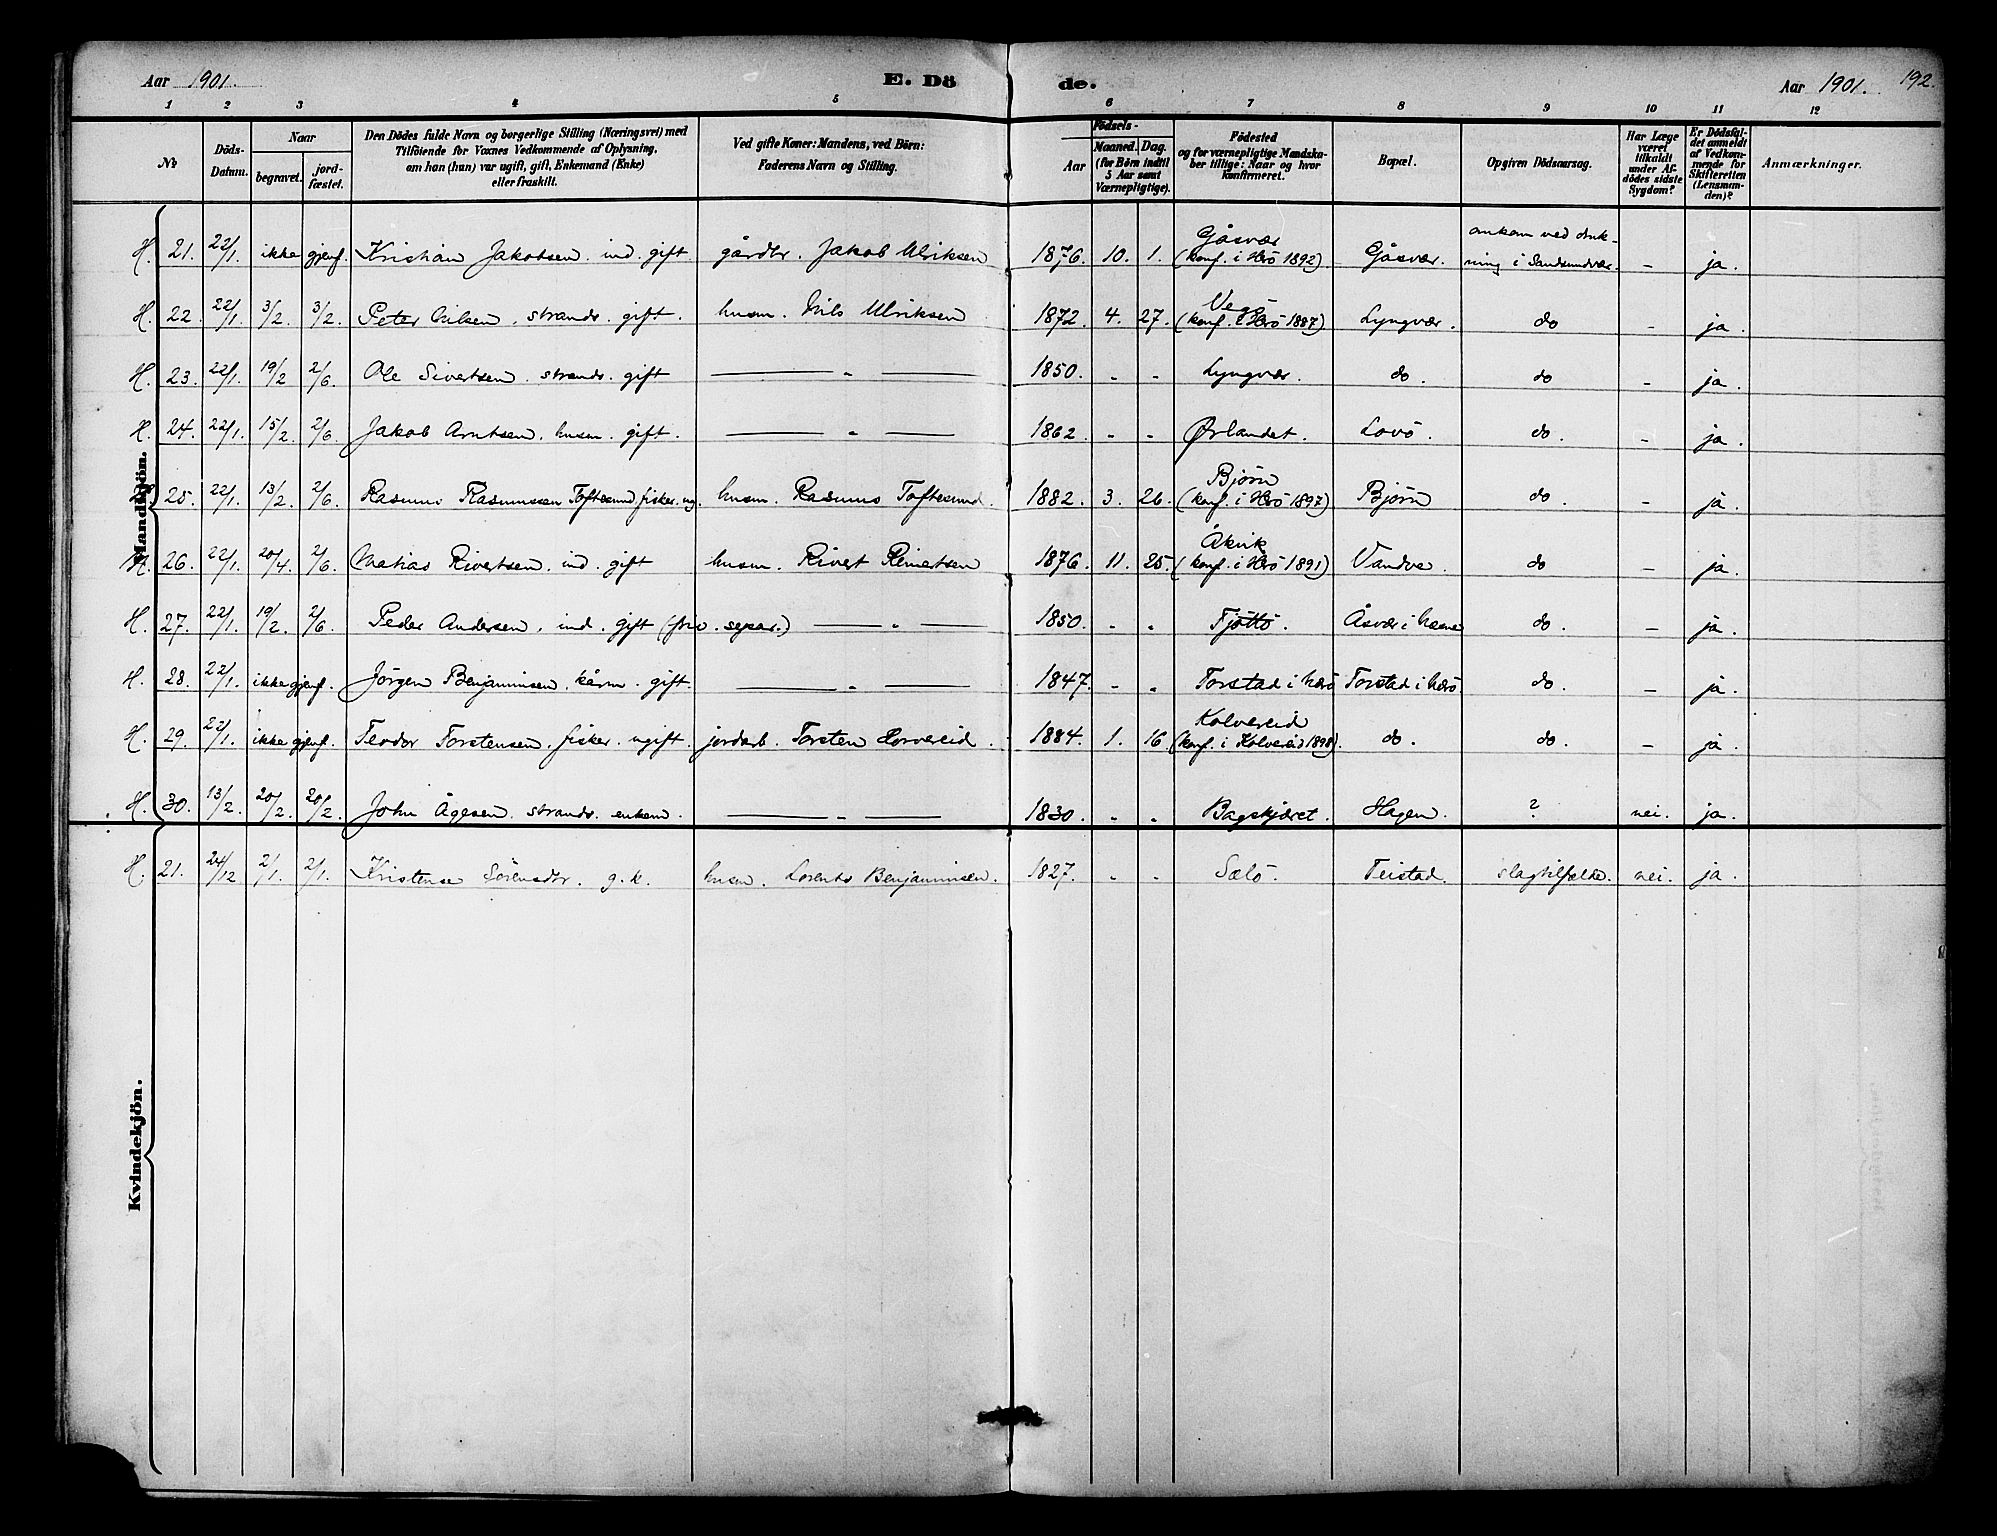 Aar 1901. E. Dö de. Aar 1901. 192.
1 2 3 4 5 6 7 8 9 10 11 12
No
Döds-Datum.
Naar
begravet.
jord-fæstet.
Den Dödes fulde Navn og borgerlige Stilling (Næringsvei) med
Tilföiende for Voxnes Vedkommende af Oplysning,
om han (hun) var ugift, gift, Enkemand (Enke)
eller fraskilt.
Ved gifte Koner: Mandens, ved Börn:
Faderens Navn og Stilling.
Födsels-
Aar
Maaned. Dag.
(for Börn indtil
5 Aar samt
Værnepligtige).
Födested
og for værnepligtige Mandska-
ber tillige: Naar og hvor
konfirmeret.
Bopæl.
Opgiven Dödsaarsag.
Har Læge
været
tilkaldt
under Af-
dödes sidste
Sygdom?
Er Dödsfal-
det anmeldt
af Vedkom-
mende for
Skifteretten
(Lensman-
den)?
Anmærkninger.
Mandkjön.
H. 21. 22/1. ikke gjenf. Kristian Jakobsen. ind. gift gårdbr. Jakob Ulriksen 1876. 10. 1. Gåsvær (konf. i Herö 1892) Gåsvær. omkom ved druk-ning i Sandsundvær. – ja.
H. 22. 22/1. 3/2. 3/2. Peter Nilsen. strands. gift. husm. Nils Ulriksen 1872. 4. 27. Vegö (konf. i Herö 1887) Lyngvær. do – ja.
H. 23. 22/1. 19/2 2/6. Ole Sivertsen. strands. gift — „ — 1850. „ „ Lyngvær. do. do – ja.
H. 24. 22/1. 15/2. 2/6. Jakob Arntsen. husm. gift. — „ — 1862. „ „ Ørlandet. Lovö. do. – ja.
H. 25. 22/1. 13/2. 2/6. Rasmus Rasmussen Toftesund, fisker. ug. husm. Rasmus Toftesund. 1882. 3. 26. Bjørn (konf. i Herö 1897) Bjørn do. – ja.
H. 26. 22/1. 20/4. 2/6. Matias Rivertsen. ind. gift husm. Rivert Reinertsen 1876. 11. 25. Åkvik (konf. i Herö 1891) Vandve. do – ja.
H. 27. 22/1. 19/2. 2/6. Peder Andersen. ind. gift ( . separ.) — „ — 1850. „ „ Tjöttö. Åsvær i do. – ja.
H. 28. 22/1. ikke gjenf. Jörgen Benjaminsen. kårm. gift. — „ — 1847. „ „ Torstad i Herö Torstad i Herö. do. – ja.
H. 29. 22/1. ikke gjenf. Teodor Torstensen. fisker. ugift. jordarb. Torsten Horvereid. 1884. 1. 16. Kolvereid (konf. i Kolvereid 1898). do. do. – ja.
H. 30. 13/2. 20/2. 20/2. John Ågesen. strands. enkem. — „ — 1830. „ „ Bagskjæret. Hagen. ? nei. ja.
Kvindekjön.
H. 21. 24/12 2/1. 2/1. Kristense Sörensdr. g.k. husm. Lorents Benjaminsen. 1827. „ „ Sælö. Teistad. slagtilfælde. nei. ja.